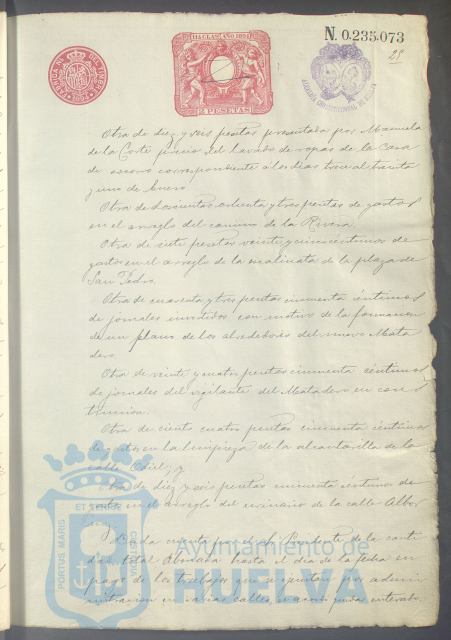 N. 0.235.073
11ª CLASE AÑO 1894
2 PESETAS
29
Otra de diez y seis pesetas presentada por Manuela
de la Corte precio del lavado de ropas de la Casa
de socorro correspondiente a los dias trece al treinta
y uno de Enero.
Otra de doscientas ochenta y tres pesetas de gastos
en el arreglo del camino de la Rivera.
Otra de siete pesetas veinte y cinco centimos de
gastos en el arreglo de la de la plaza de
San Pedro.
Otra de cuarenta y tres pesetas cincuenta céntimos
de jornales invertidos con motivo de la formacion
de un plano de los alrededores del nuevo Mata
dero.
Otra de veinte y cuatro pesetas cincuenta céntimos
de jornales del vigilante del Matadero en cons
truccion.
Otra de ciento cuatro pesetas cincuenta céntimos
de gastos en la limpieza de la alcantarilla de la
calle Odiel, y
Otra de diez y seis pesetas cincuenta céntimos de
en el arreglo del de la calle
Dada cuenta por el Sr. Presidente de la canti
dad total abonada hasta el dia de la fecha en
pago de los trabajos que se por admi
nistracion en varias calles,
Ayuntamiento de
HUELVA
PORTUS MARIS
ET TERRÆ
CUSTODIA